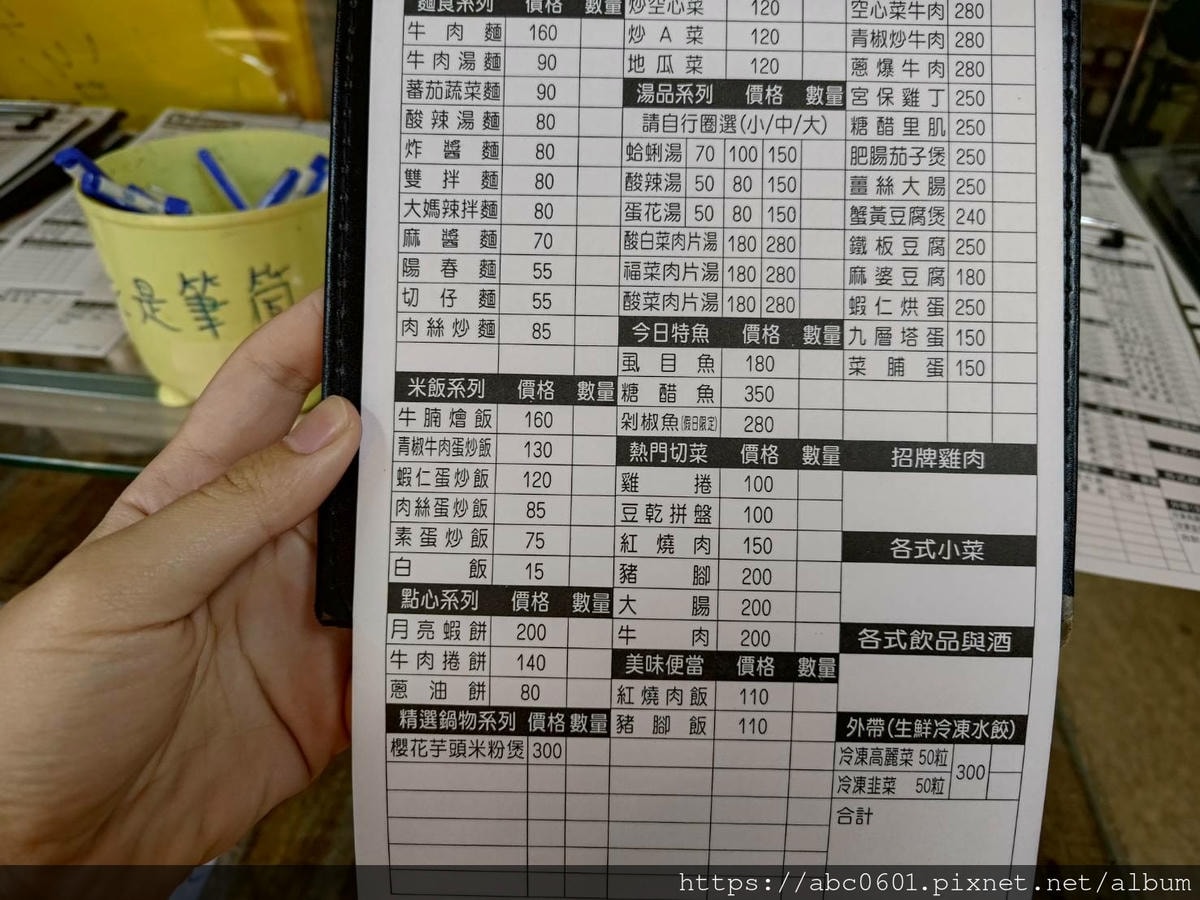 麵食系列 價格 數量
牛肉麵 160
牛肉湯麵 90
蕃茄蔬菜麵 90
酸辣湯麵 80
炸醬麵 80
雙拌麵 80
大媽辣拌麵 80
麻醬麵 70
陽春麵 55
切仔麵 55
肉絲炒麵 85
米飯系列 價格 數量
牛腩燴飯 160
青椒牛肉蛋炒飯 130
蝦仁蛋炒飯 120
肉絲蛋炒飯 85
素蛋炒飯 75
白飯 15
點心系列 價格 數量
月亮蝦餅 200
牛肉捲餅 140
蔥油餅 80
精選鍋物系列 價格 數量
櫻花芋頭米粉煲 300
炒空心菜 120
炒A菜 120
地瓜菜 120
湯品系列 價格 數量
請自行圈選(小/中/大)
蛤蜊湯 70 100 150
酸辣湯 50 80 150
蛋花湯 50 80 150
酸白菜肉片湯 180 280
福菜肉片湯 180 280
酸菜肉片湯 180 280
今日特魚 價格 數量
虱目魚 180
糖醋魚 350
剁椒魚(假日限定) 280
熱門切菜 價格 數量
雞捲 100
豆乾拼盤 100
紅燒肉 150
豬腳 200
大腸 200
牛肉 200
美味便當 價格 數量
紅燒肉飯 110
豬腳飯 110
空心菜牛肉 280
青椒炒牛肉 280
蔥爆牛肉 280
宮保雞丁 250
糖醋里肌 250
肥腸茄子煲 250
薑絲大腸 250
蟹黃豆腐煲 240
鐵板豆腐 250
麻婆豆腐 180
蝦仁烘蛋 250
九層塔蛋 150
菜脯蛋 150
招牌雞肉
各式小菜
各式飲品與酒
外帶(生鮮冷凍水餃)
冷凍高麗菜 50粒 300
冷凍韭菜 50粒
合計
是筆筒
https://abc0601.pixnet.net/album